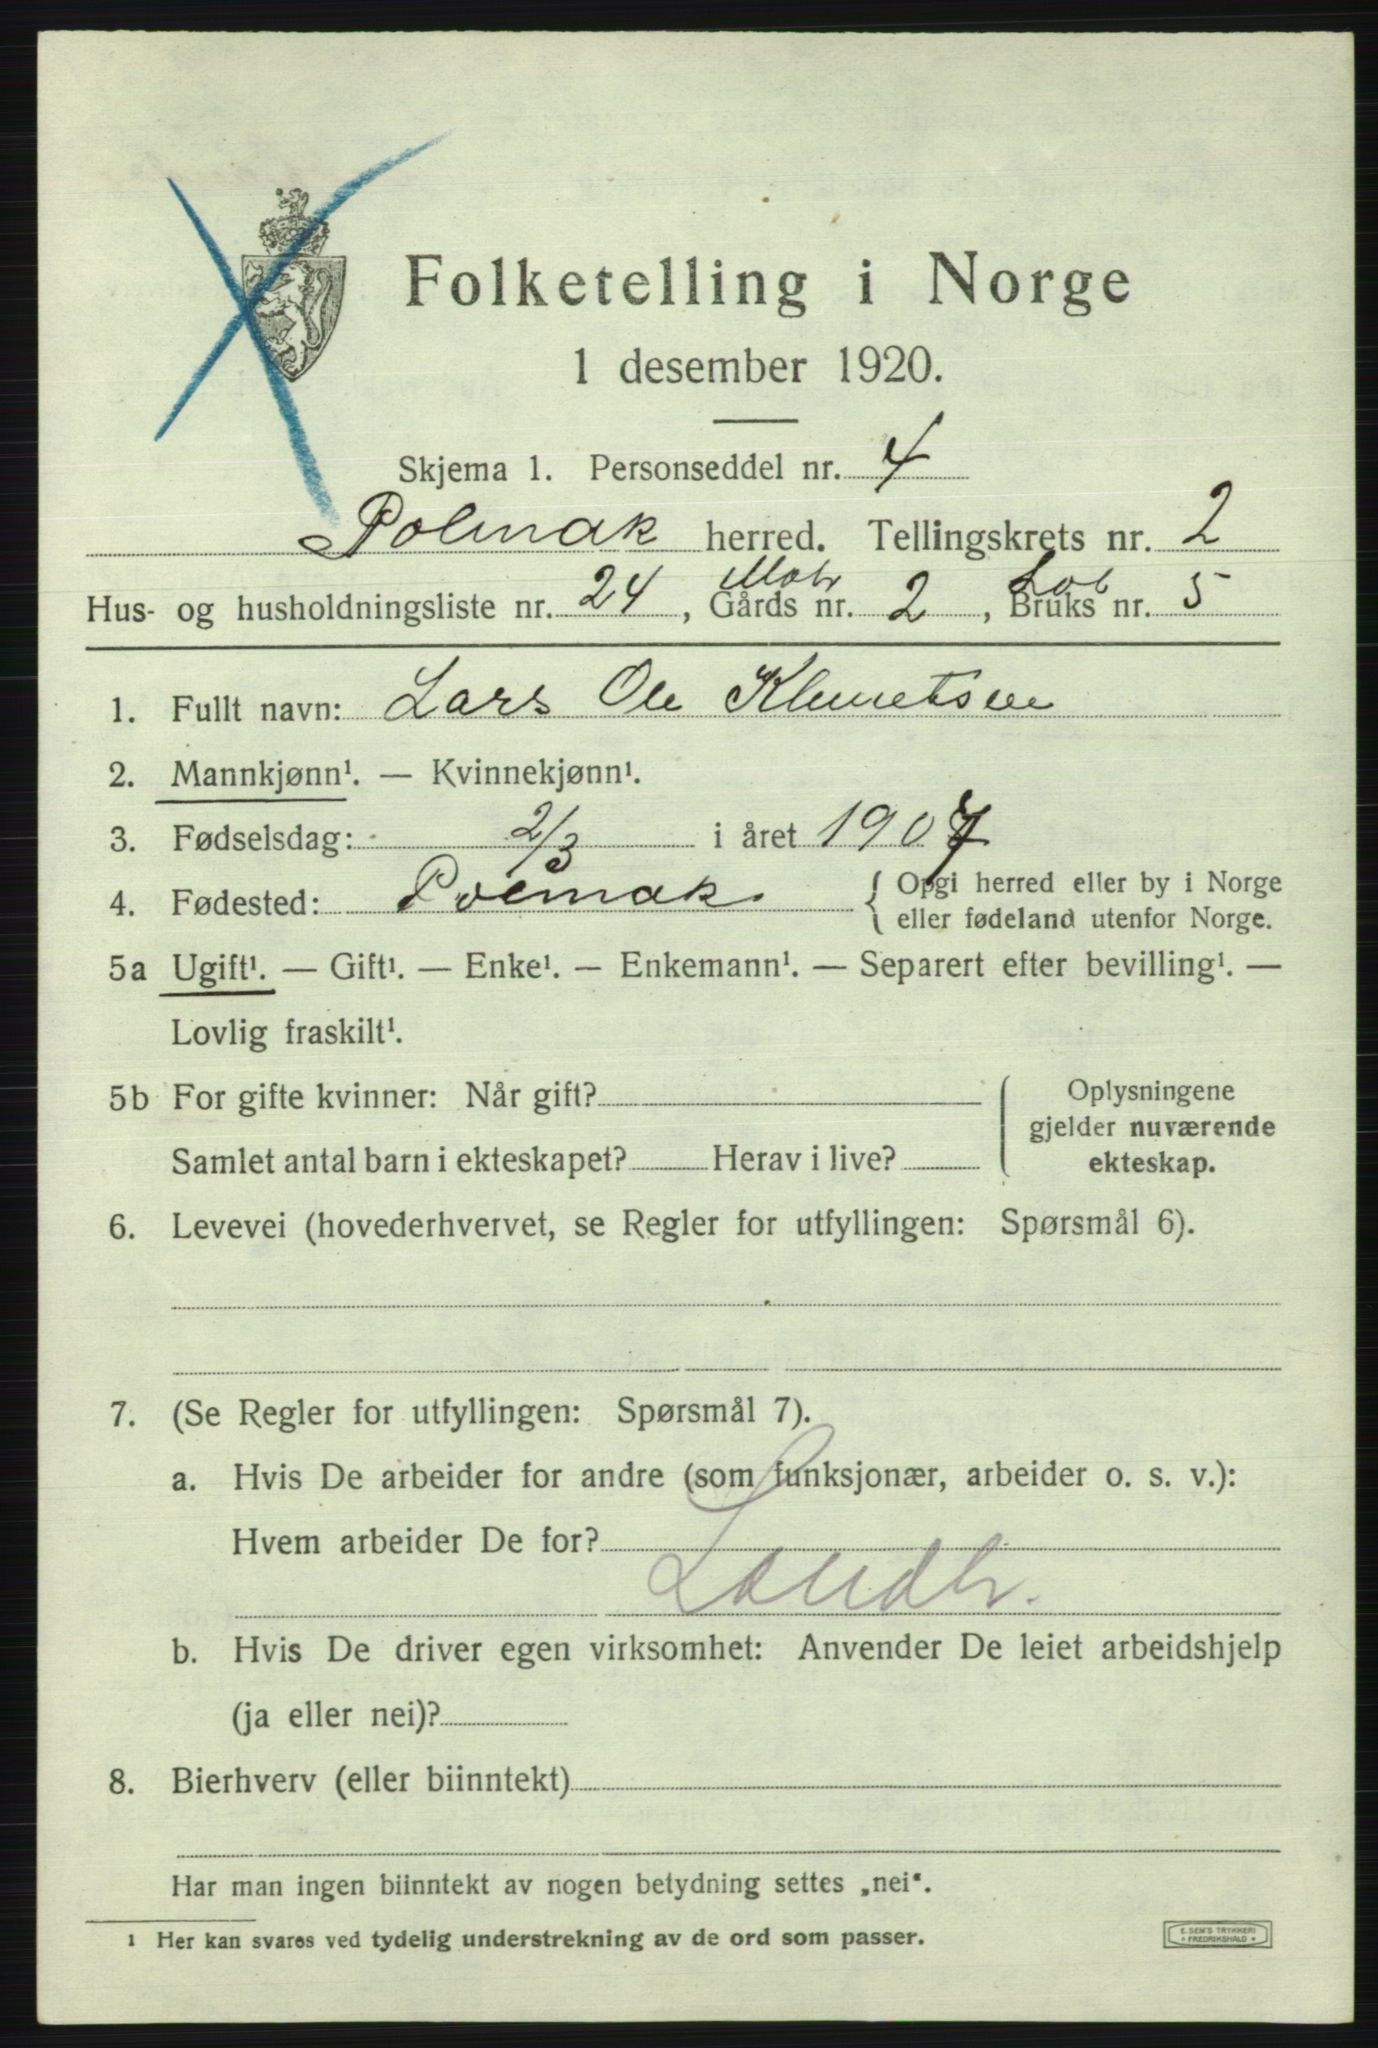 Folketelling i Norge
1 desember 1920.
Skjema 1. Personseddel nr. 4
Polmak herred. Tellingskrets nr. 2
Matr Løb
Hus- og husholdningsliste nr. 24, Gårds nr. 2, Bruks nr. 5
1. Fullt navn: Lars Ole Klemetsen
2. Mannkjønn¹. — Kvinnekjønn¹.
3. Fødselsdag: 2/3 i året 1907
4. Fødested: Polmak { Opgi herred eller by i Norge
eller fødeland utenfor Norge.
5a Ugift¹. — Gift¹. — Enke¹. — Enkemann¹. — Separert efter bevilling¹. —
Lovlig fraskilt¹.
5b For gifte kvinner: Når gift?
Samlet antal barn i ekteskapet? Herav i live?
Oplysningene
gjelder nuværende
ekteskap.
6. Levevei (hovederhvervet, se Regler for utfyllingen: Spørsmål 6).
7. (Se Regler for utfyllingen: Spørsmål 7).
a. Hvis De arbeider for andre (som funksjonær, arbeider o. s. v.):
Hvem arbeider De for?
Landbr.
b. Hvis De driver egen virksomhet: Anvender De leiet arbeidshjelp
(ja eller nei)?
8. Bierhverv (eller biinntekt)
Har man ingen biinntekt av nogen betydning settes „nei".
¹ Her kan svares ved tydelig understrekning av de ord som passer.
E. SEM'S TRYKKERI
* FREDRIKSHALD *